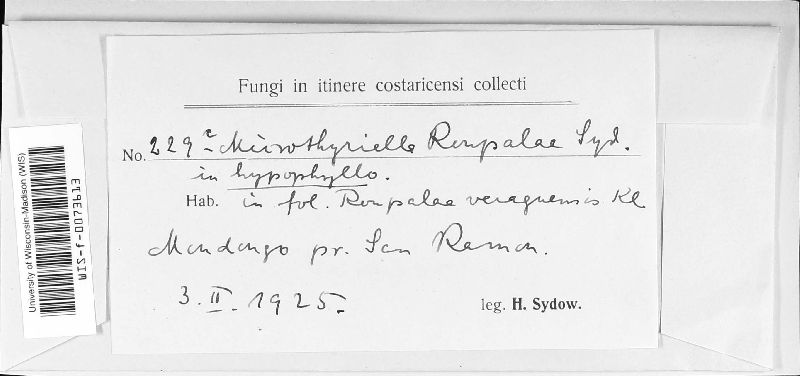 Fungi in itinere costaricensi collecti
No. 229a Microthyriella Roupalae Syd.
in hypophyllo.
Hab. in fol. Roupalae veraguensis Kl
Mondongo pr. San Ramon.
3. II. 1925
leg. H. Sydow.
University of Wisconsin-Madison (WIS)
WIS-f-0073613